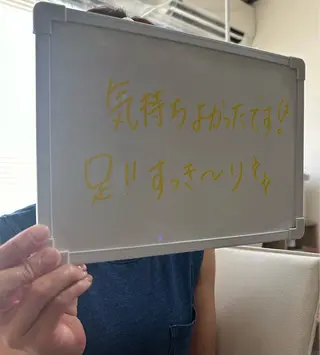 気持ちよかったです!!
足!! すっき〜り✨